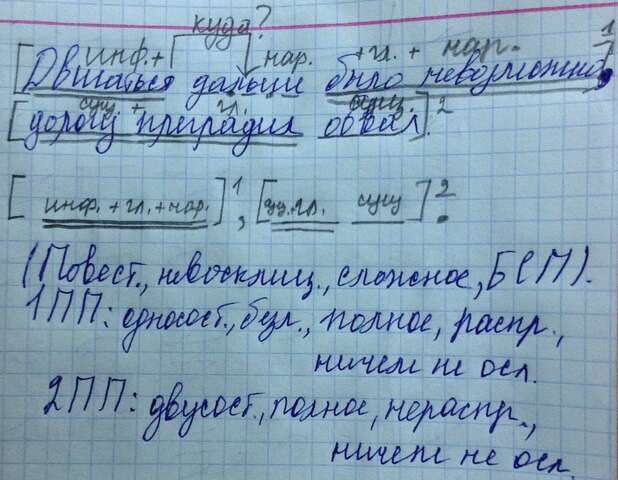 куда?
инф.+ нар. +гл. + нар.
[Двигаться дальше было невозможно]1,
сущ + гл. сущ.
[дорогу преградил обвал]2.
[инф.+гл.+нар.]1, [гл. сущ]2.
(Повест., невосклиц., сложное, БСП).
1ПП: односост., безл., полное, распр.,
ничем не осл.
2ПП: двусост., полное, нераспр.,
ничем не осл.